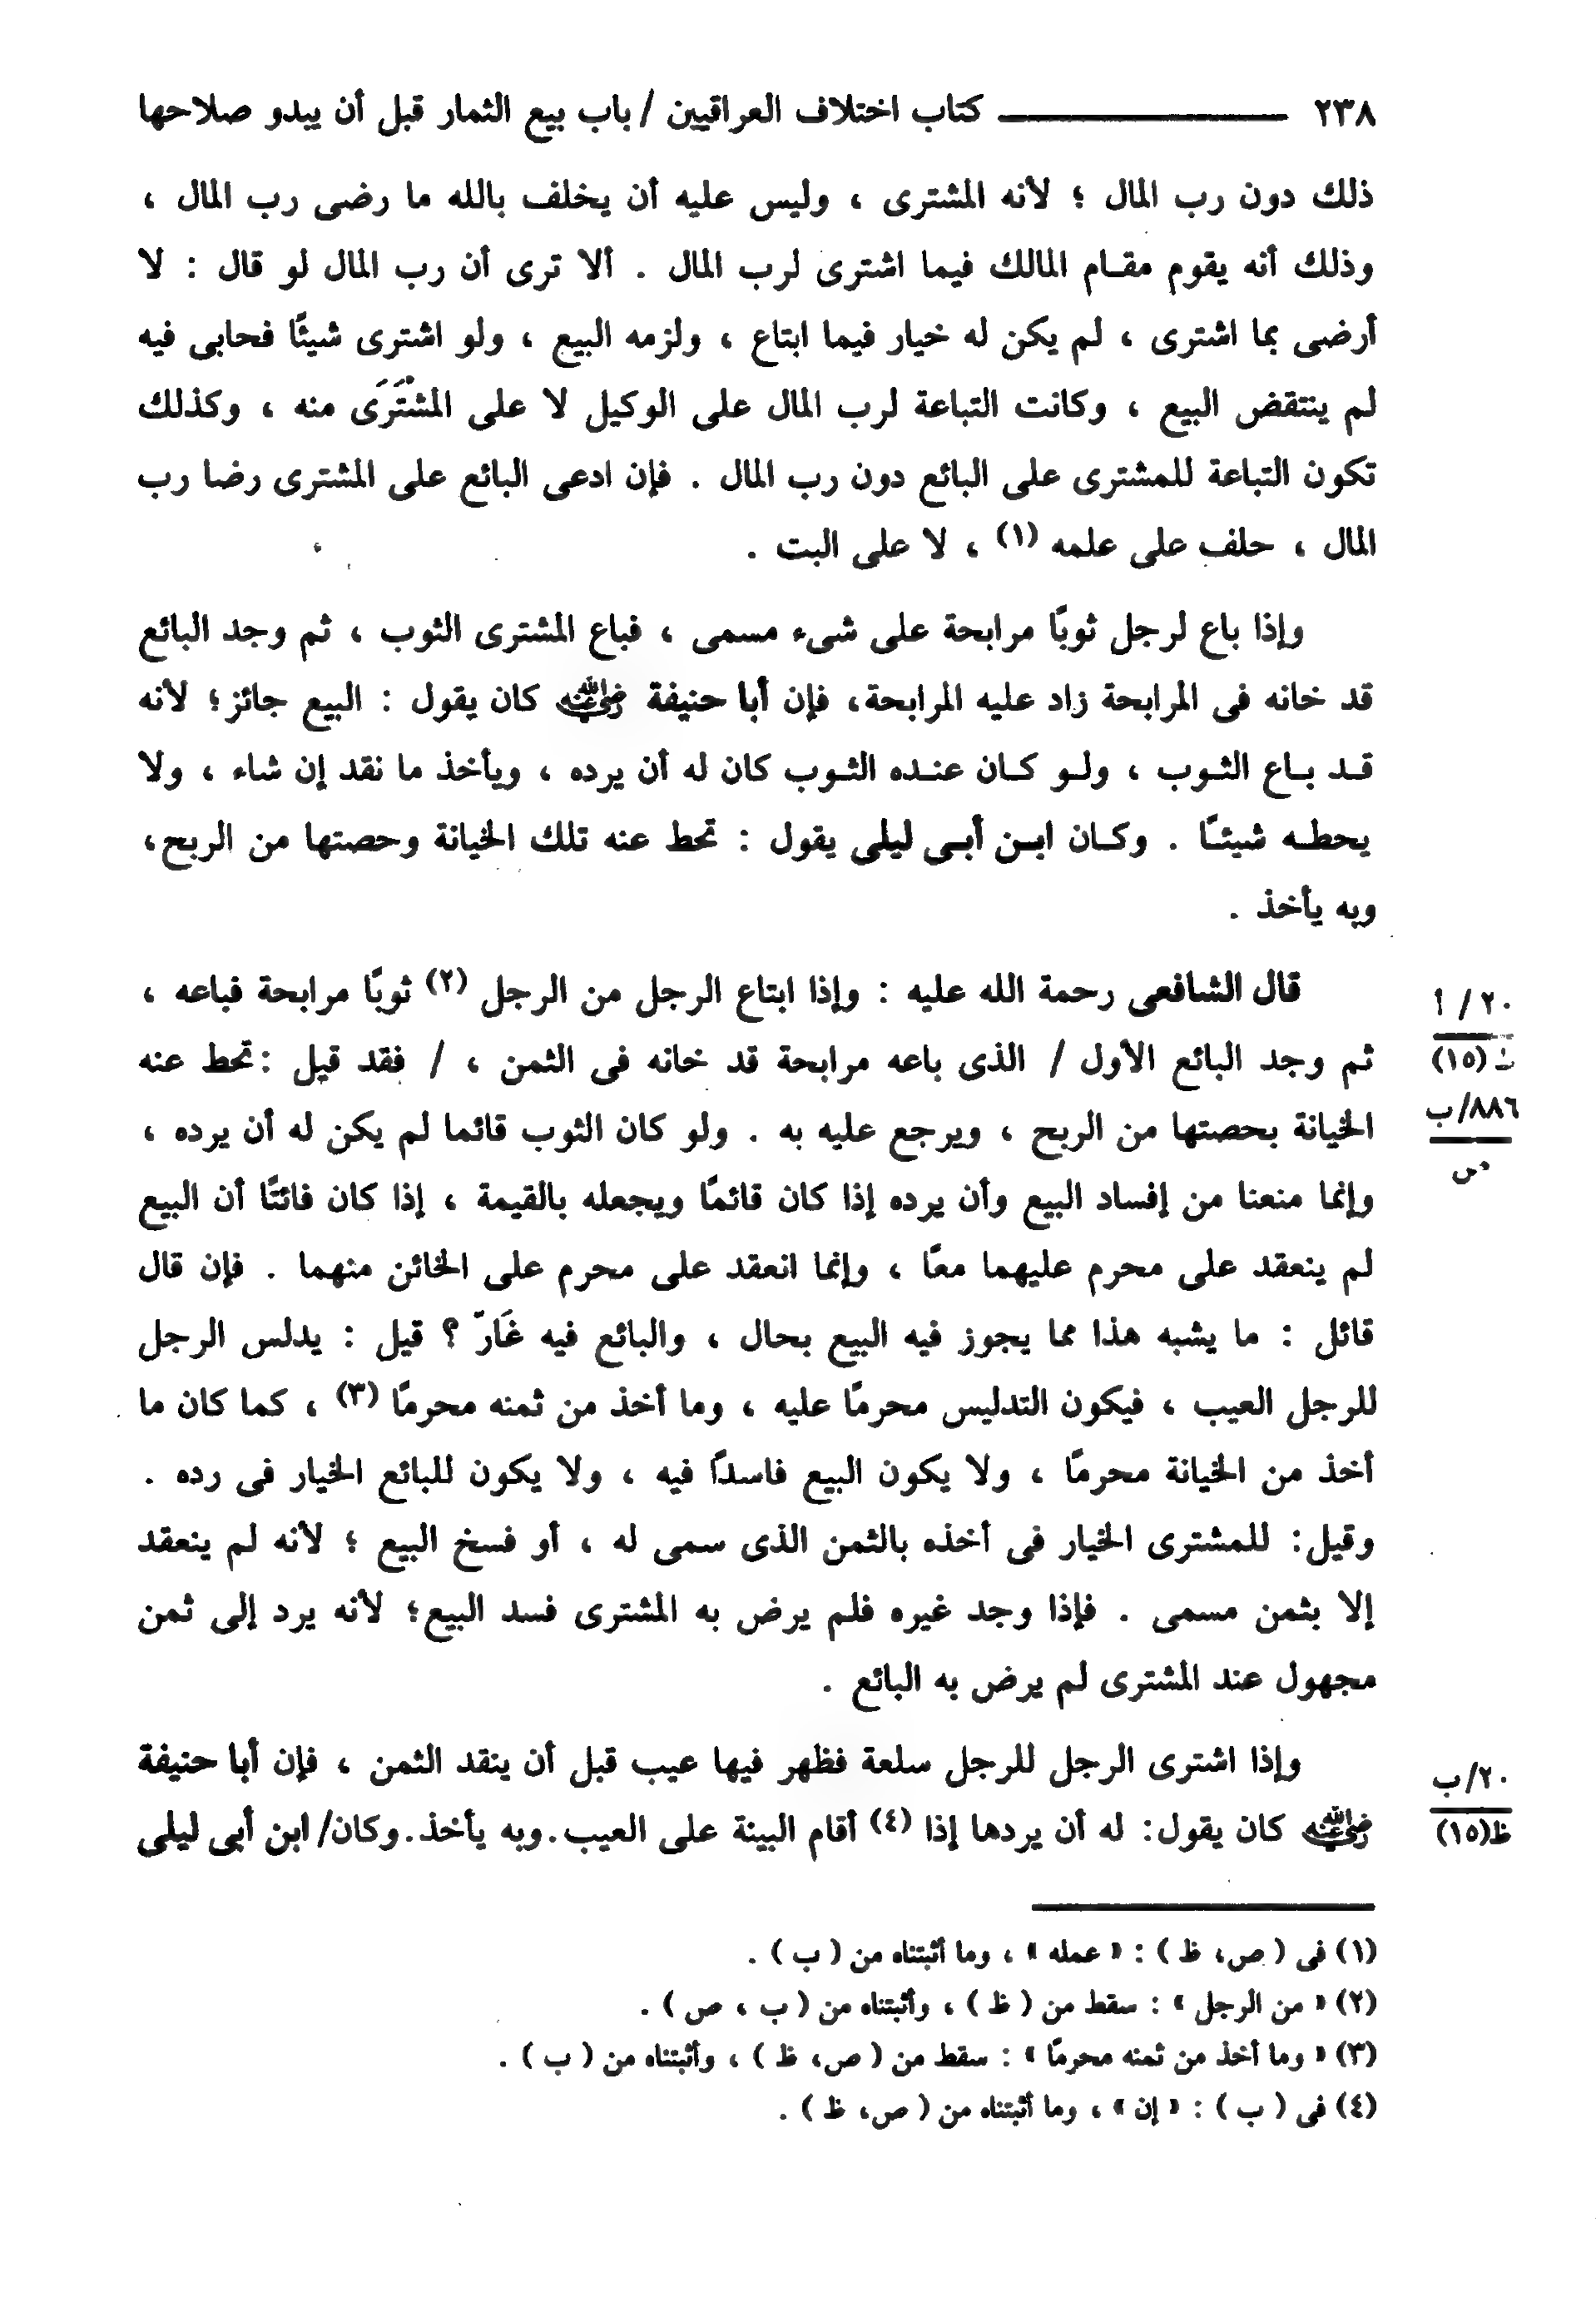 ٢٣٨ ــــــــــــــــ كتاب اختلاف العراقيين / باب بيع الثمار قبل أن يبدو صلاحها
ذلك دون رب المال ؛ لأنه المشترى ، وليس عليه أن يخلف بالله ما رضى رب المال ،
وذلك أنه يقوم مقام المالك فيما اشترى لرب المال . ألا ترى أن رب المال لو قال : لا
أرضى بما اشترى ، لم يكن له خيار فيما ابتاع ، ولزمه البيع ، ولو اشترى شيئًا فحابى فيه
لم ينتقض البيع ، وكانت التباعة لرب المال على الوكيل لا على المشتَرَى منه ، وكذلك
تكون التباعة للمشترى على البائع دون رب المال . فإن ادعى البائع على المشترى رضا رب
المال ، حلف على علمه (١) ، لا على البت .
وإذا باع لرجل ثوبًا مرابحة على شىء مسمى ، فباع المشترى الثوب ، ثم وجد البائع
قد خانه فى المرابحة زاد عليه المرابحة، فإن أبا حنيفة رضي الله عنه كان يقول : البيع جائز؛ لأنه
قد باع الثوب ، ولو كان عنده الثوب كان له أن يرده ، ويأخذ ما نقد إن شاء ، ولا
يحطه شيئًا . وكان ابن أبى ليلى يقول : تحط عنه تلك الخيانة وحصتها من الربح،
وبه يأخذ .
قال الشافعى رحمة الله عليه : وإذا ابتاع الرجل من الرجل (٢) ثوبًا مرابحة فباعه ،
٢٠ / أ
ثم وجد البائع الأول / الذى باعه مرابحة قد خانه فى الثمن ، / فقد قيل :تحط عنه
(١٥)
الخيانة بحصتها من الربح ، ويرجع عليه به . ولو كان الثوب قائما لم يكن له أن يرده ،
٨٨٦/ب
ص
وإنما منعنا من إفساد البيع وأن يرده إذا كان قائمًا ويجعله بالقيمة ، إذا كان فائتًا أن البيع
لم ينعقد على محرم عليهما معًا ، وإنما انعقد على محرم على الخائن منهما . فإن قال
قائل : ما يشبه هذا مما يجوز فيه البيع بحال ، والبائع فيه غَارّ ؟ قيل : يدلس الرجل
للرجل العيب ، فيكون التدليس محرمًا عليه ، وما أخذ من ثمنه محرمًا (٣) ، كما كان ما
أخذ من الخيانة محرمًا ، ولا يكون البيع فاسدًا فيه ، ولا يكون للبائع الخيار فى رده .
وقيل: للمشترى الخيار فى أخذه بالثمن الذى سمى له ، أو فسخ البيع ؛ لأنه لم ينعقد
إلا بثمن مسمى . فإذا وجد غيره فلم يرض به المشترى فسد البيع؛ لأنه يرد إلى ثمن
مجهول عند المشترى لم يرض به البائع .
وإذا اشترى الرجل للرجل سلعة فظهر فيها عيب قبل أن ينقد الثمن ، فإن أبا حنيفة
٢٠/ب
رضي الله عنه كان يقول: له أن يردها إذا (٤) أقام البينة على العيب.وبه يأخذ.وكان/ ابن أبى ليلى
ظ(١٥)
(١) فى ( ص، ظ ) : « عمله » ، وما أثبتناه من ( ب ) .
(٢) « من الرجل » : سقط من ( ظ ) ، وأثبتناه من ( ب ، ص ) .
(٣) « وما أخذ من ثمنه محرمًا » : سقط من ( ص، ظ ) ، وأثبتناه من ( ب ) .
(٤) فى ( ب ) : « إن » ، وما أثبتناه من ( ص، ظ ) .